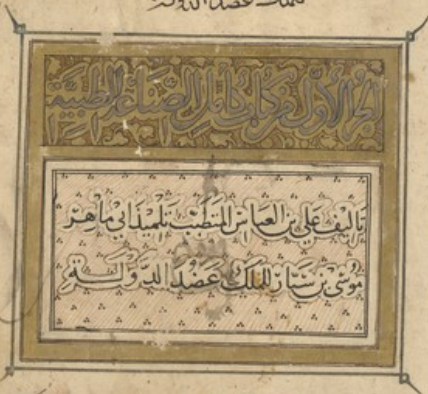 للملك عضد الدولة
الجزء الأول من كتاب كامل الصناعة الطبية
تأليف علي بن العباس المتطبب تلميذ ابي ماهر
موسى بن سيار للملك عضد الدولة